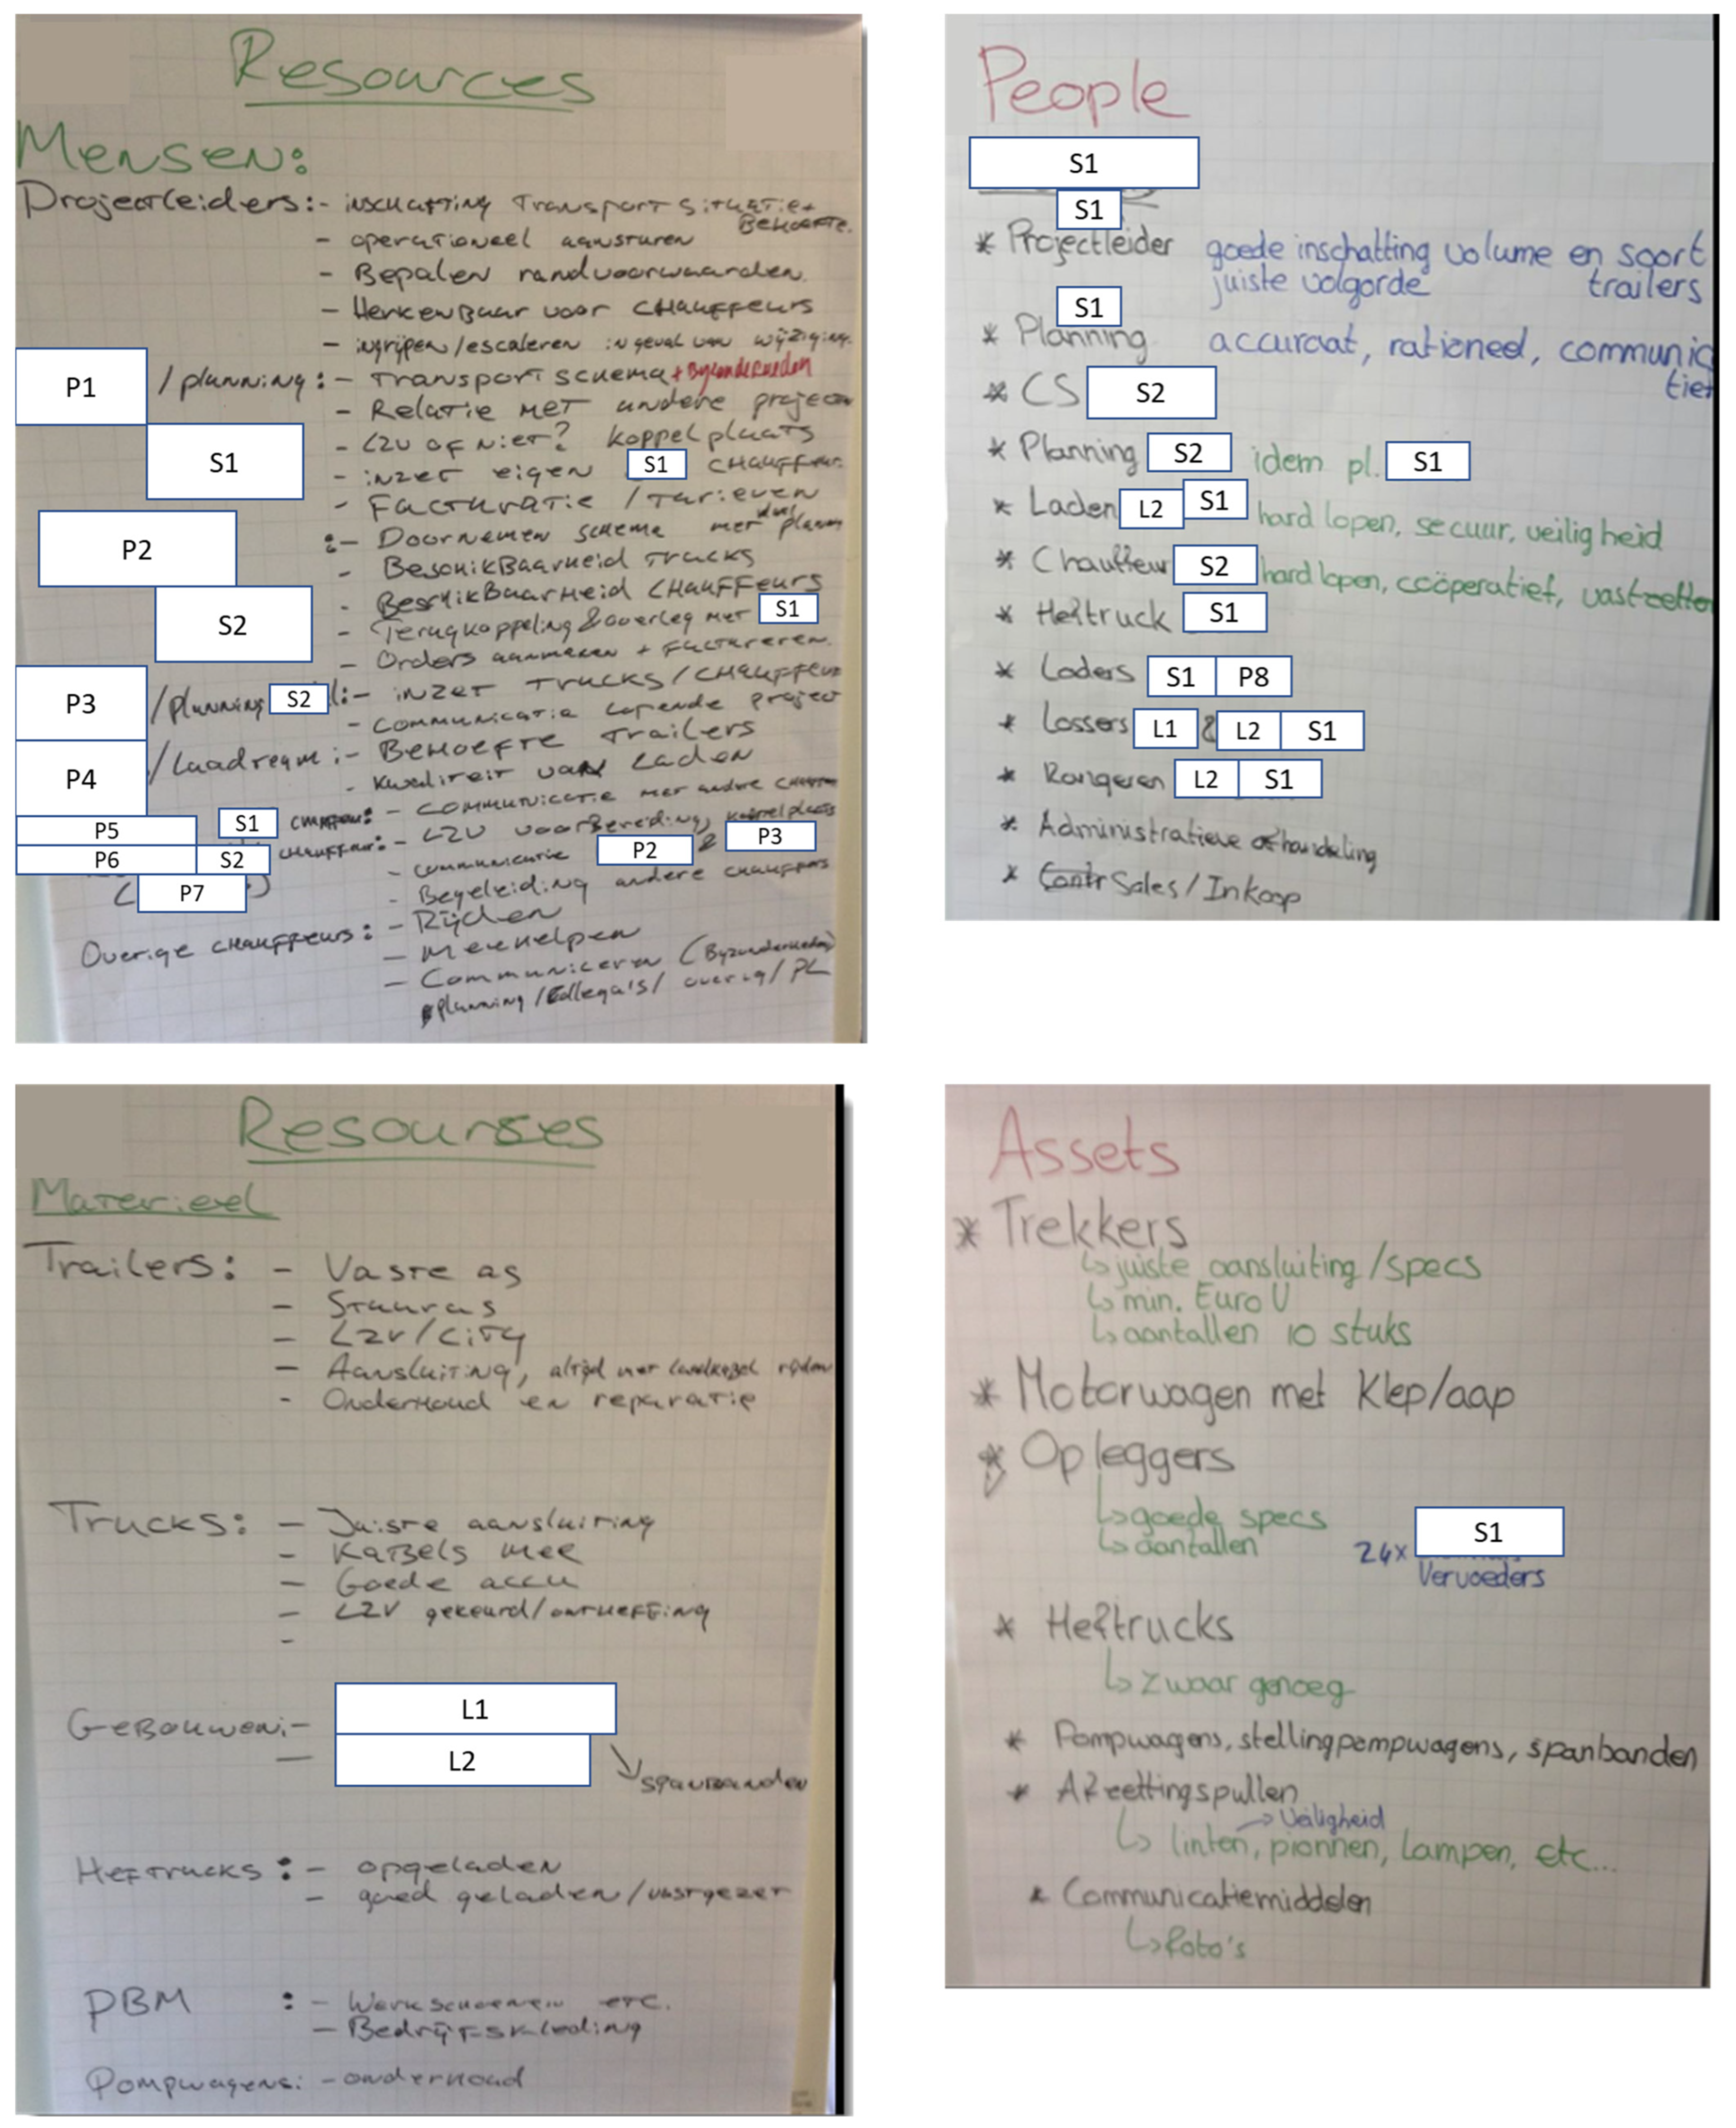 Resources
Mensen:
Projectleiders: - inschatting Transport situatie +
Behoefte.
- operationeel aansturen
- Bepalen randvoorwaarden.
- Herkenbaar voor chauffeurs
- ingrijpen/escaleren in geval van wijziging.
P1 /planning: - Transportschema + Byzonderheden
- Relatie met andere projecten
S1 - LZV of niet? koppelplaats
- inzet eigen S1 chauffeurs
- Facturatie / Tarieven
P2 :- Doornemen schema met planning
- Beschikbaarheid trucks
S2 - Beschikbaarheid chauffeurs
- Terugkoppeling & overleg met S1
- Orders aanmaken + factureren.
P3 /planning S2 :- inzet trucks/chauffeur
- communicatie lopende project
P4 /Laadteam :- Behoefte trailers
- kwaliteit van laden
P5 S1 chauffeur: - communicatie met andere
P6 S2 chauffeur: - LZV voorbereiding, koppelplaats
- communicatie P2 & P3
P7 - Begeleiding andere chauffeurs
Overige chauffeurs: - Rijden
- Meehelpen
- Communiceren (Byzonderheden)
planning/Collega's/overig/PL
People
S1
S1
* Projectleider goede inschatting volume en soort
juiste volgorde trailers
S1
* Planning accuraat, rationeel, communica
tief
* CS S2
* Planning S2 idem pl. S1
* Laden L2 S1 hard lopen, secuur, veiligheid
* Chauffeur S2 hard lopen, coöperatief, vastzetten
* Heftruck S1
* Laders S1 P8
* Lossers L1 & L2 S1
* Rangeren L2 S1
* Administratieve afhandeling
* Contr Sales/Inkoop
Resourses
Materieel
Trailers: - Vaste as
- Stuuras
- LZV/City
- Aansluiting, altijd met laadkabel rijden
- Onderhoud en reparatie
Trucks: - Juiste aansluiting
- Kabels mee
- Goede accu
- LZV gekeurd/ontheffing
-
Gebouwen: - L1
- L2
spanbanden
Heftrucks: - opgeladen
- goed geladen/vastgezet
PBM : - Werkschoenen etc.
- Bedrijfskleding
Pompwagens: - onderhoud
Assets
* Trekkers
↳ juiste aansluiting/specs
↳ min. Euro V
↳ aantallen 10 stuks
* Motorwagen met Klep/aap
* Opleggers
↳ goede specs
↳ aantallen 24x S1
Vervoeders
* Heftrucks
↳ zwaar genoeg
* Pompwagens, stellingpompwagens, spanbanden
* Afzettingspullen
→ Veiligheid
↳ linten, pionnen, lampen, etc...
* Communicatiemiddelen
↳ foto's